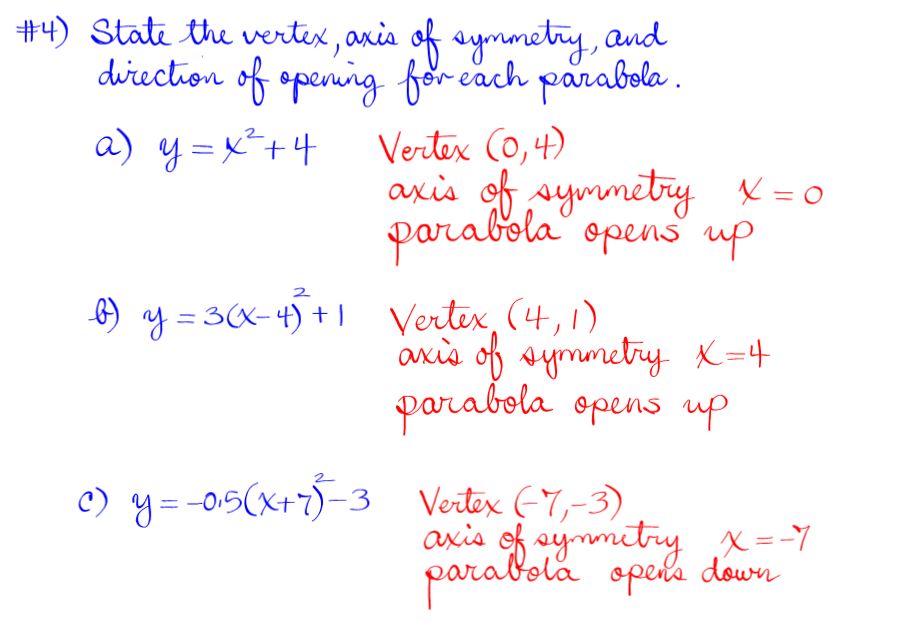 #4) State the vertex, axis of symmetry, and
direction of opening for each parabola.
a) y = x² + 4 Vertex (0, 4)
axis of symmetry x = 0
parabola opens up
b) y = 3(x-4)² + 1 Vertex (4, 1)
axis of symmetry x = 4
parabola opens up
c) y = -0.5(x+7)² - 3 Vertex (-7, -3)
axis of symmetry x = -7
parabola opens down